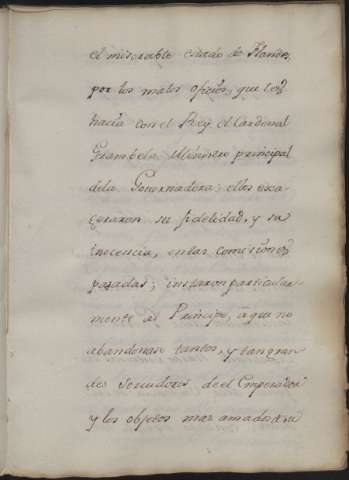 el miserable estado de Flandes
por los malos oficios, que les
hacia con el Rey el Cardenal
Grambela Ministro principal
dela Governadora; ellos exa-
geraron su fidelidad, y su
inocencia, en las comisiones
pasadas; instaron particular-
mente al Principe, a que no
abandonase tantos, y tan gran-
des servidores de el Emperador
y los objetos mas amados de su